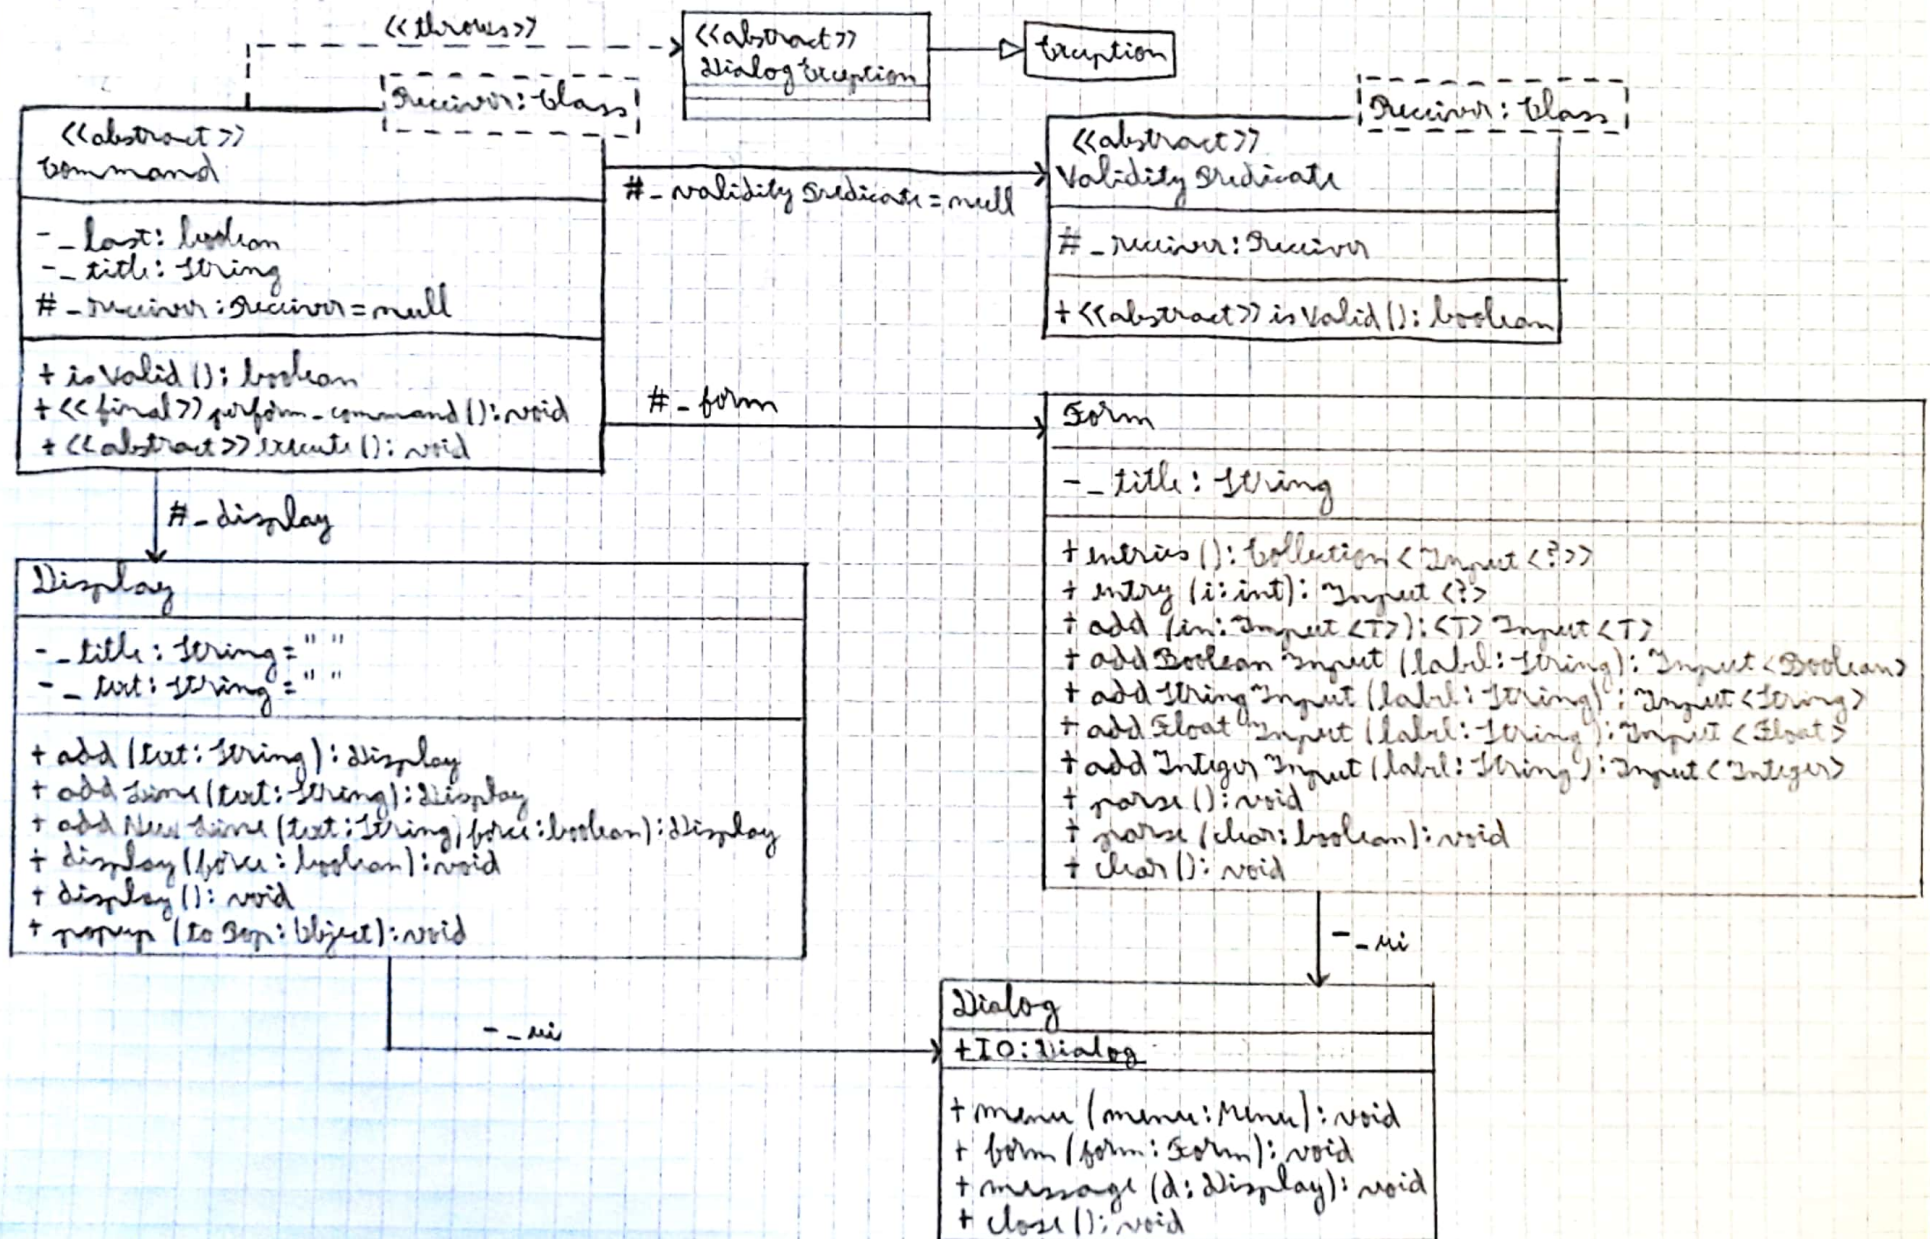 <<throws>>
<<abstract>>
DialogException
Exception
Receiver: Class
<<abstract>>
Command
- _ last: boolean
- _ title: String
# _ receiver: Receiver = null
+ isValid(): boolean
+ <<final>> perform_command(): void
+ <<abstract>> execute(): void
# _ validityPredicate = null
Receiver: Class
<<abstract>>
ValidityPredicate
# _ receiver: Receiver
+ <<abstract>> isValid(): boolean
# _ form
Form
- _ title: String
+ entries(): Collection<Input<?>>
+ entry (i: int): Input<?>
+ add (in: Input<T>): <T> Input<T>
+ addBooleanInput (label: String): Input<Boolean>
+ addStringInput (label: String): Input<String>
+ addFloatInput (label: String): Input<Float>
+ addIntegerInput (label: String): Input<Integer>
+ parse(): void
+ parse (clear: boolean): void
+ clear(): void
# _ display
Display
- _ title: String = " "
- _ text: String = " "
+ add (text: String): Display
+ addLine (text: String): Display
+ addNewLine (text: String, force: boolean): Display
+ display (force: boolean): void
+ display(): void
+ popup (toPop: Object): void
- _ ui
- _ ui
Dialog
+ IO: Dialog
+ menu (menu: Menu): void
+ form (form: Form): void
+ message (d: Display): void
+ close(): void